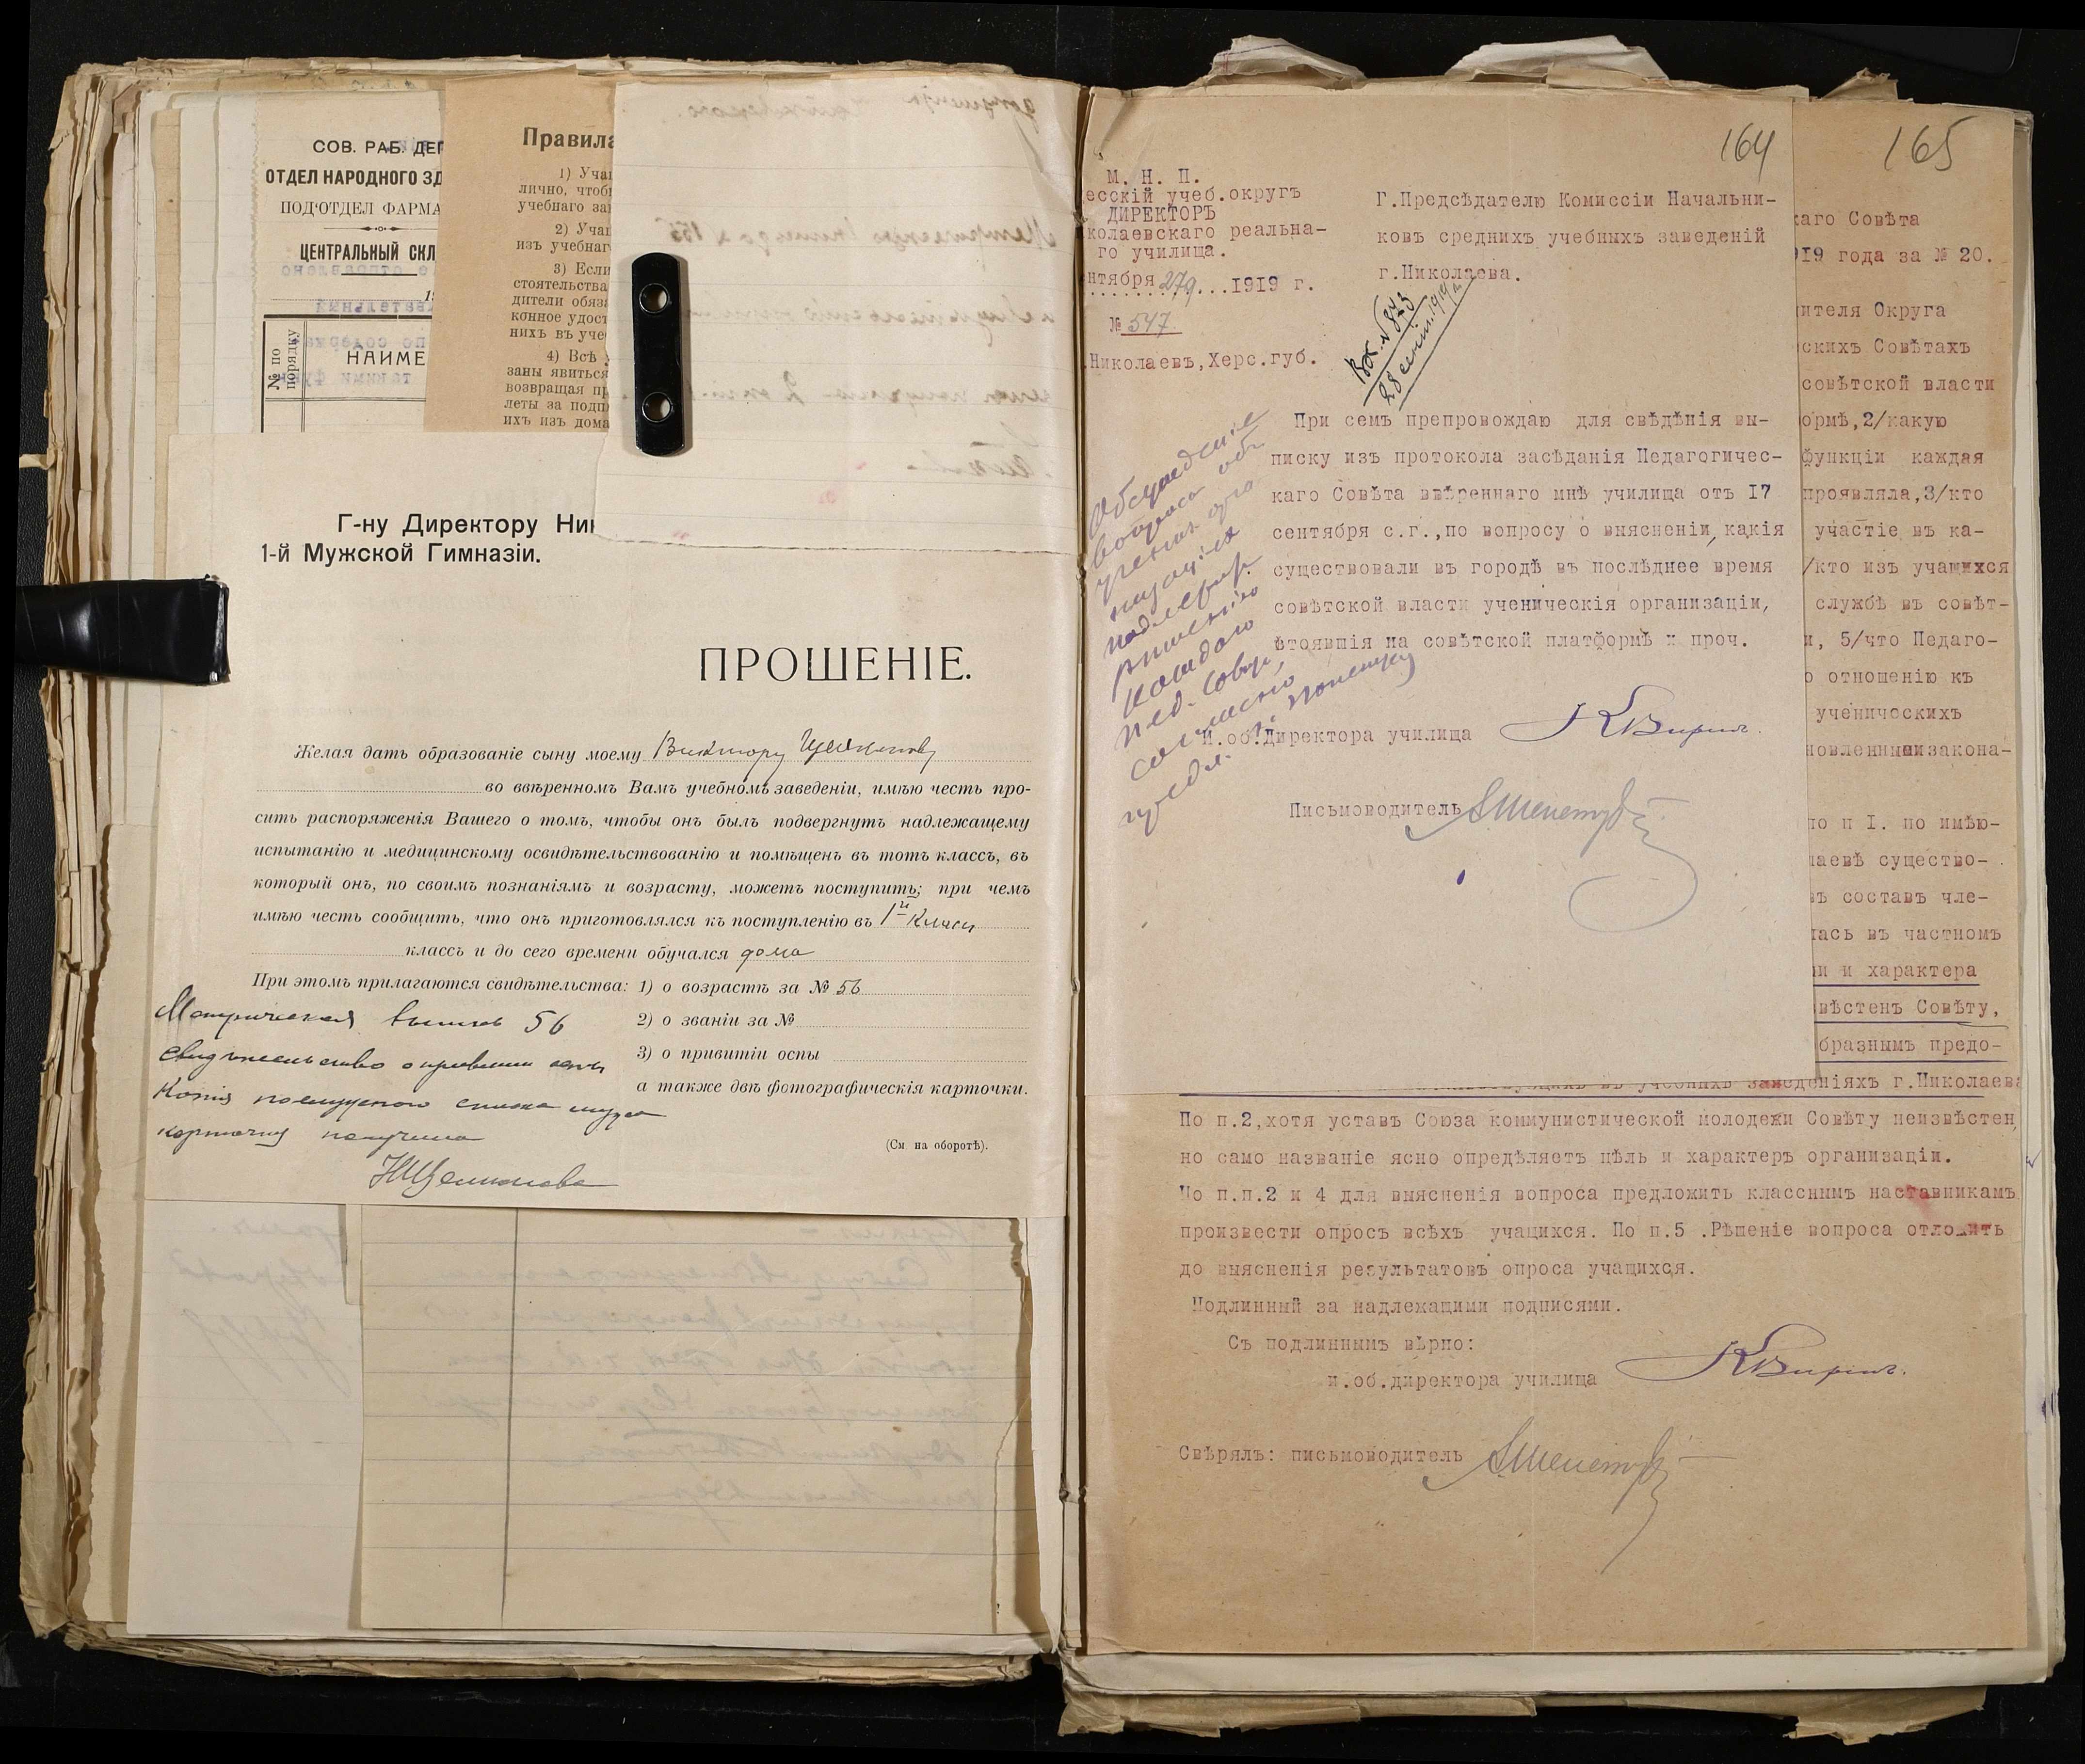 СОВ. РАБ. ДЕП
ОТДЕЛ НАРОДНОГО ЗД
ПОДОТДЕЛ ФАРМА
ЦЕНТРАЛЬНЫЙ СКЛ
№ по порядку
НАИМЕ
Правила
1) Уча
лично, чтобы
учебнаго за
2) Уча
изъ учебнаг
3) Если
стоятельства
дители обяз
конное удост
нихъ въ уче
4) Всѣ
заны явиться
возвращая пр
леты за подп
ихъ изъ дома
Г-ну Директору Ник
1-й Мужской Гимназіи.
ПРОШЕНІЕ.
Желая дать образованіе сыну моему Виктору
во ввѣренномъ Вамъ учебномъ заведеніи, имѣю честь про-
сить распоряженія Вашего о томъ, чтобы онъ былъ подвергнутъ надлежащему
испытанію и медицинскому освидѣтельствованію и помѣщенъ въ тотъ классъ, въ
который онъ, по своимъ познаніямъ и возрасту, можетъ поступить; при чемъ
имѣю честь сообщить, что онъ приготовлялся къ поступленію въ 1й классъ
классъ и до сего времени обучался дома
При этомъ прилагаются свидѣтельства: 1) о возрастѣ за № 56
2) о званіи за №
3) о привитіи оспы
а также двѣ фотографическія карточки.
(См на оборотѣ).
Метрическая выпись 56
свидѣтельство о привитіи оспы
Копія послужного списка мужа
карточку получила
НЩелкунова
164
М. Н. П.
есскій учеб.округъ
ДИРЕКТОРЪ
колаевскаго реальна-
го училища.
нтября 27/9 1919 г.
№ 547
.Николаевъ,Херс.губ.
Г.Предсѣдателю Комиссіи Начальни-
ковъ среднихъ учебныхъ заведеній
г.Николаева.
Вх. № 873
28 сент. 1919 г.
При семъ препровождаю для свѣдѣнія вы-
писку изъ протокола засѣданія Педагогичес-
каго Совѣта ввѣреннаго мнѣ училища отъ 17
сентября с.г.,по вопросу о выясненіи, какія
существовали въ городѣ въ послѣднее время
совѣтской власти ученическія организаціи,
стоявшія на совѣтской платформѣ и проч.
И.об.Директора училища КВирин
Письмоводитель
Обсужденіе
вопроса объ
ученич. орга
низаціяхъ
подлежит
рѣшенію
каждаго
пед. совѣта,
согласно
165
каго Совѣта
919 года за № 20.
ителя Округа
скихъ Совѣтахъ
совѣтской власти
ормѣ,2/какую
функціи каждая
проявляла,3/кто
участіе въ ка-
/кто изъ учащихся
службѣ въ совѣт-
и, 5/что Педаго-
о отношенію къ
ученическихъ
новленнымизакона-
по п I. по имѣю-
лаевѣ существо-
въ составъ чле-
лась въ частномъ
ии и характера
звѣстенъ Совѣту,
бразнымъ предо-
учебныхъ заведеніяхъ г.Николаева
По п.2,хотя уставъ Союза коммунистической молодежи Совѣту неизвѣстен,
но само названіе ясно опредѣляетъ цѣль и характеръ организаціи.
По п.п.2 и 4 для выясненія вопроса предложить класснымъ наставникамъ
произвести опросъ всѣхъ учащихся. По п.5 .Рѣшеніе вопроса отложить
до выясненія результатовъ опроса учащихся.
Подлинный за надлежащими подписями.
Съ подлиннымъ вѣрно:
и.об.директора училища КВирин
Свѣрялъ: письмоводитель